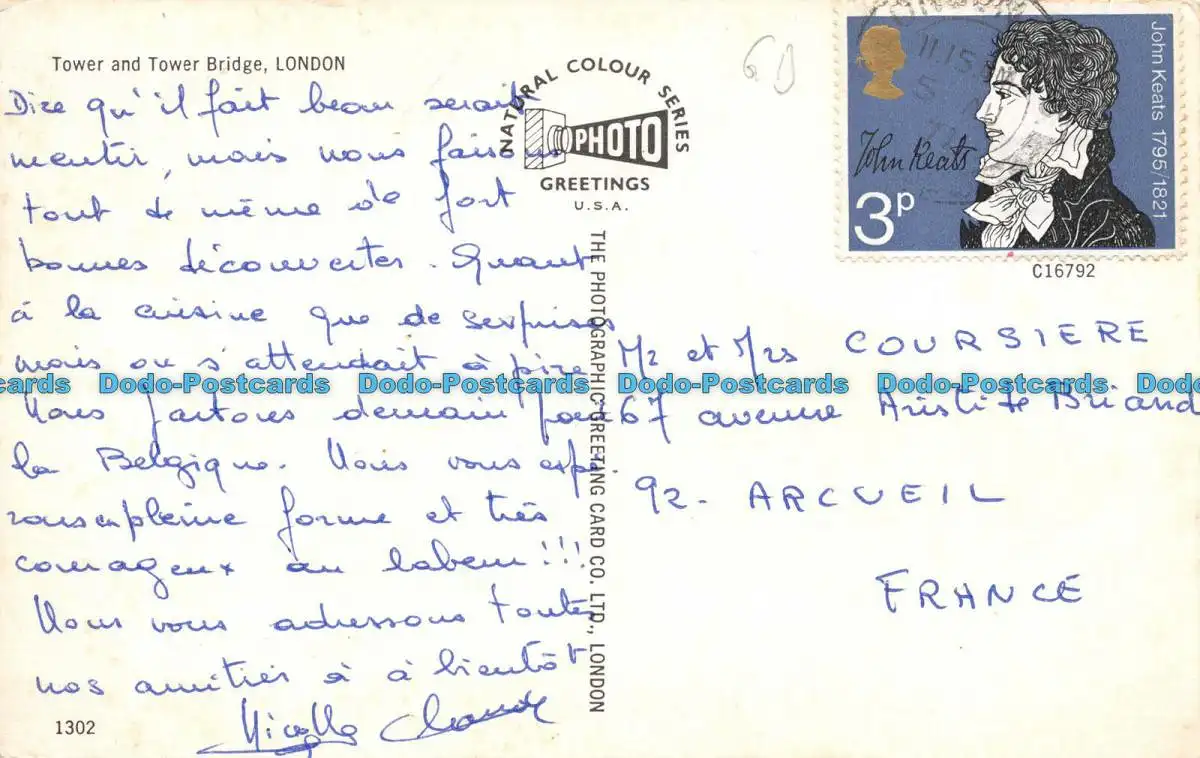 Tower and Tower Bridge, LONDON
Dire qu'il fait beau serait
mentir, mais nous faisons
tout de même de fort
bonnes découvertes. Quant
à la cuisine que de surprises
mais on s'attendait à pire
Nous partons demain pour
la Belgique. Nous vous espé
rons en pleine forme et très
courageux au labeur!!!
Nous vous adressons toutes
nos amitiés à à bientôt
Claude
1302
NATURAL COLOUR SERIES
PHOTO
GREETINGS
U.S.A.
THE PHOTOGRAPHIC GREETING CARD CO. LTD., LONDON
John Keats 1795/1821
John Keats
3P
C16792
Mr et Mrs COURSIERE
67 avenue Aristide Briand
92- ARCUEIL
FRANCE
Dodo-Postcards Dodo-Postcards Dodo-Postcards Dodo-Postcards